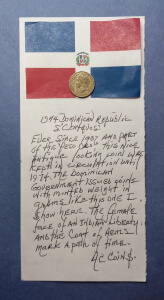 1974 Dominican Republic
5 Centavos
Ever since 1937 and part
of the
this nice
antique looking coin was
kept in circulation until
1974. The Dominican
Government issued coins
with printed weight in
grams like this one I
show here. The female
face of an Indian Liberty
and the Coat of Arms
mark a path of time.